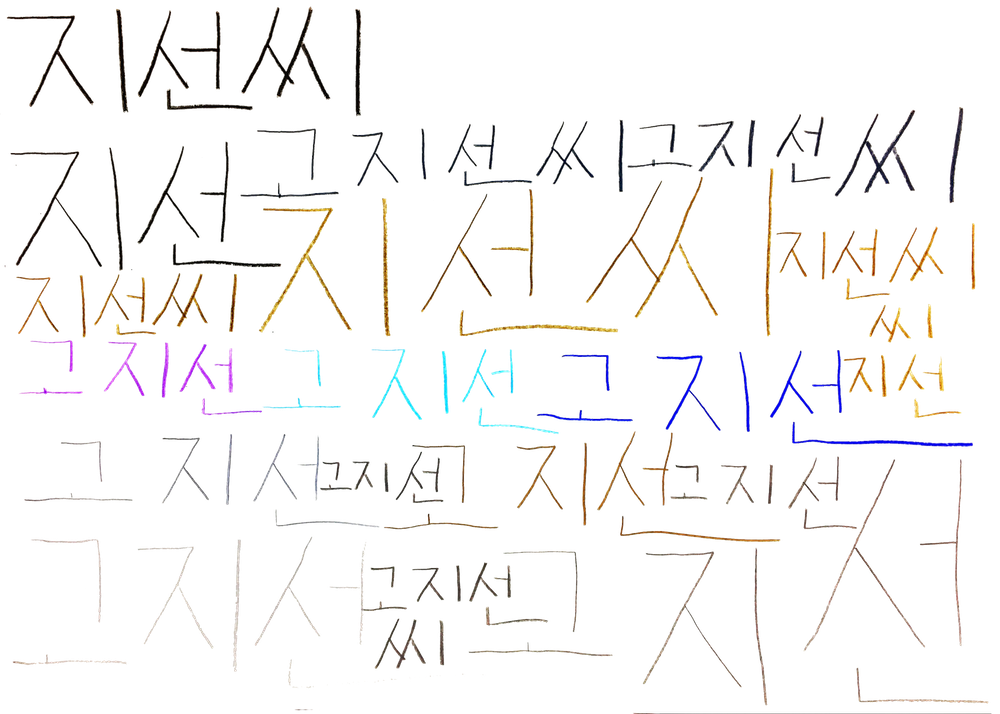 지선씨
지선 고지선씨 고지선씨
지선씨 지선씨
지선씨 씨
고지선 고지선 고지선 지선
고지선 고지선 고지선 고지선
고지선 고지선 고지선
씨